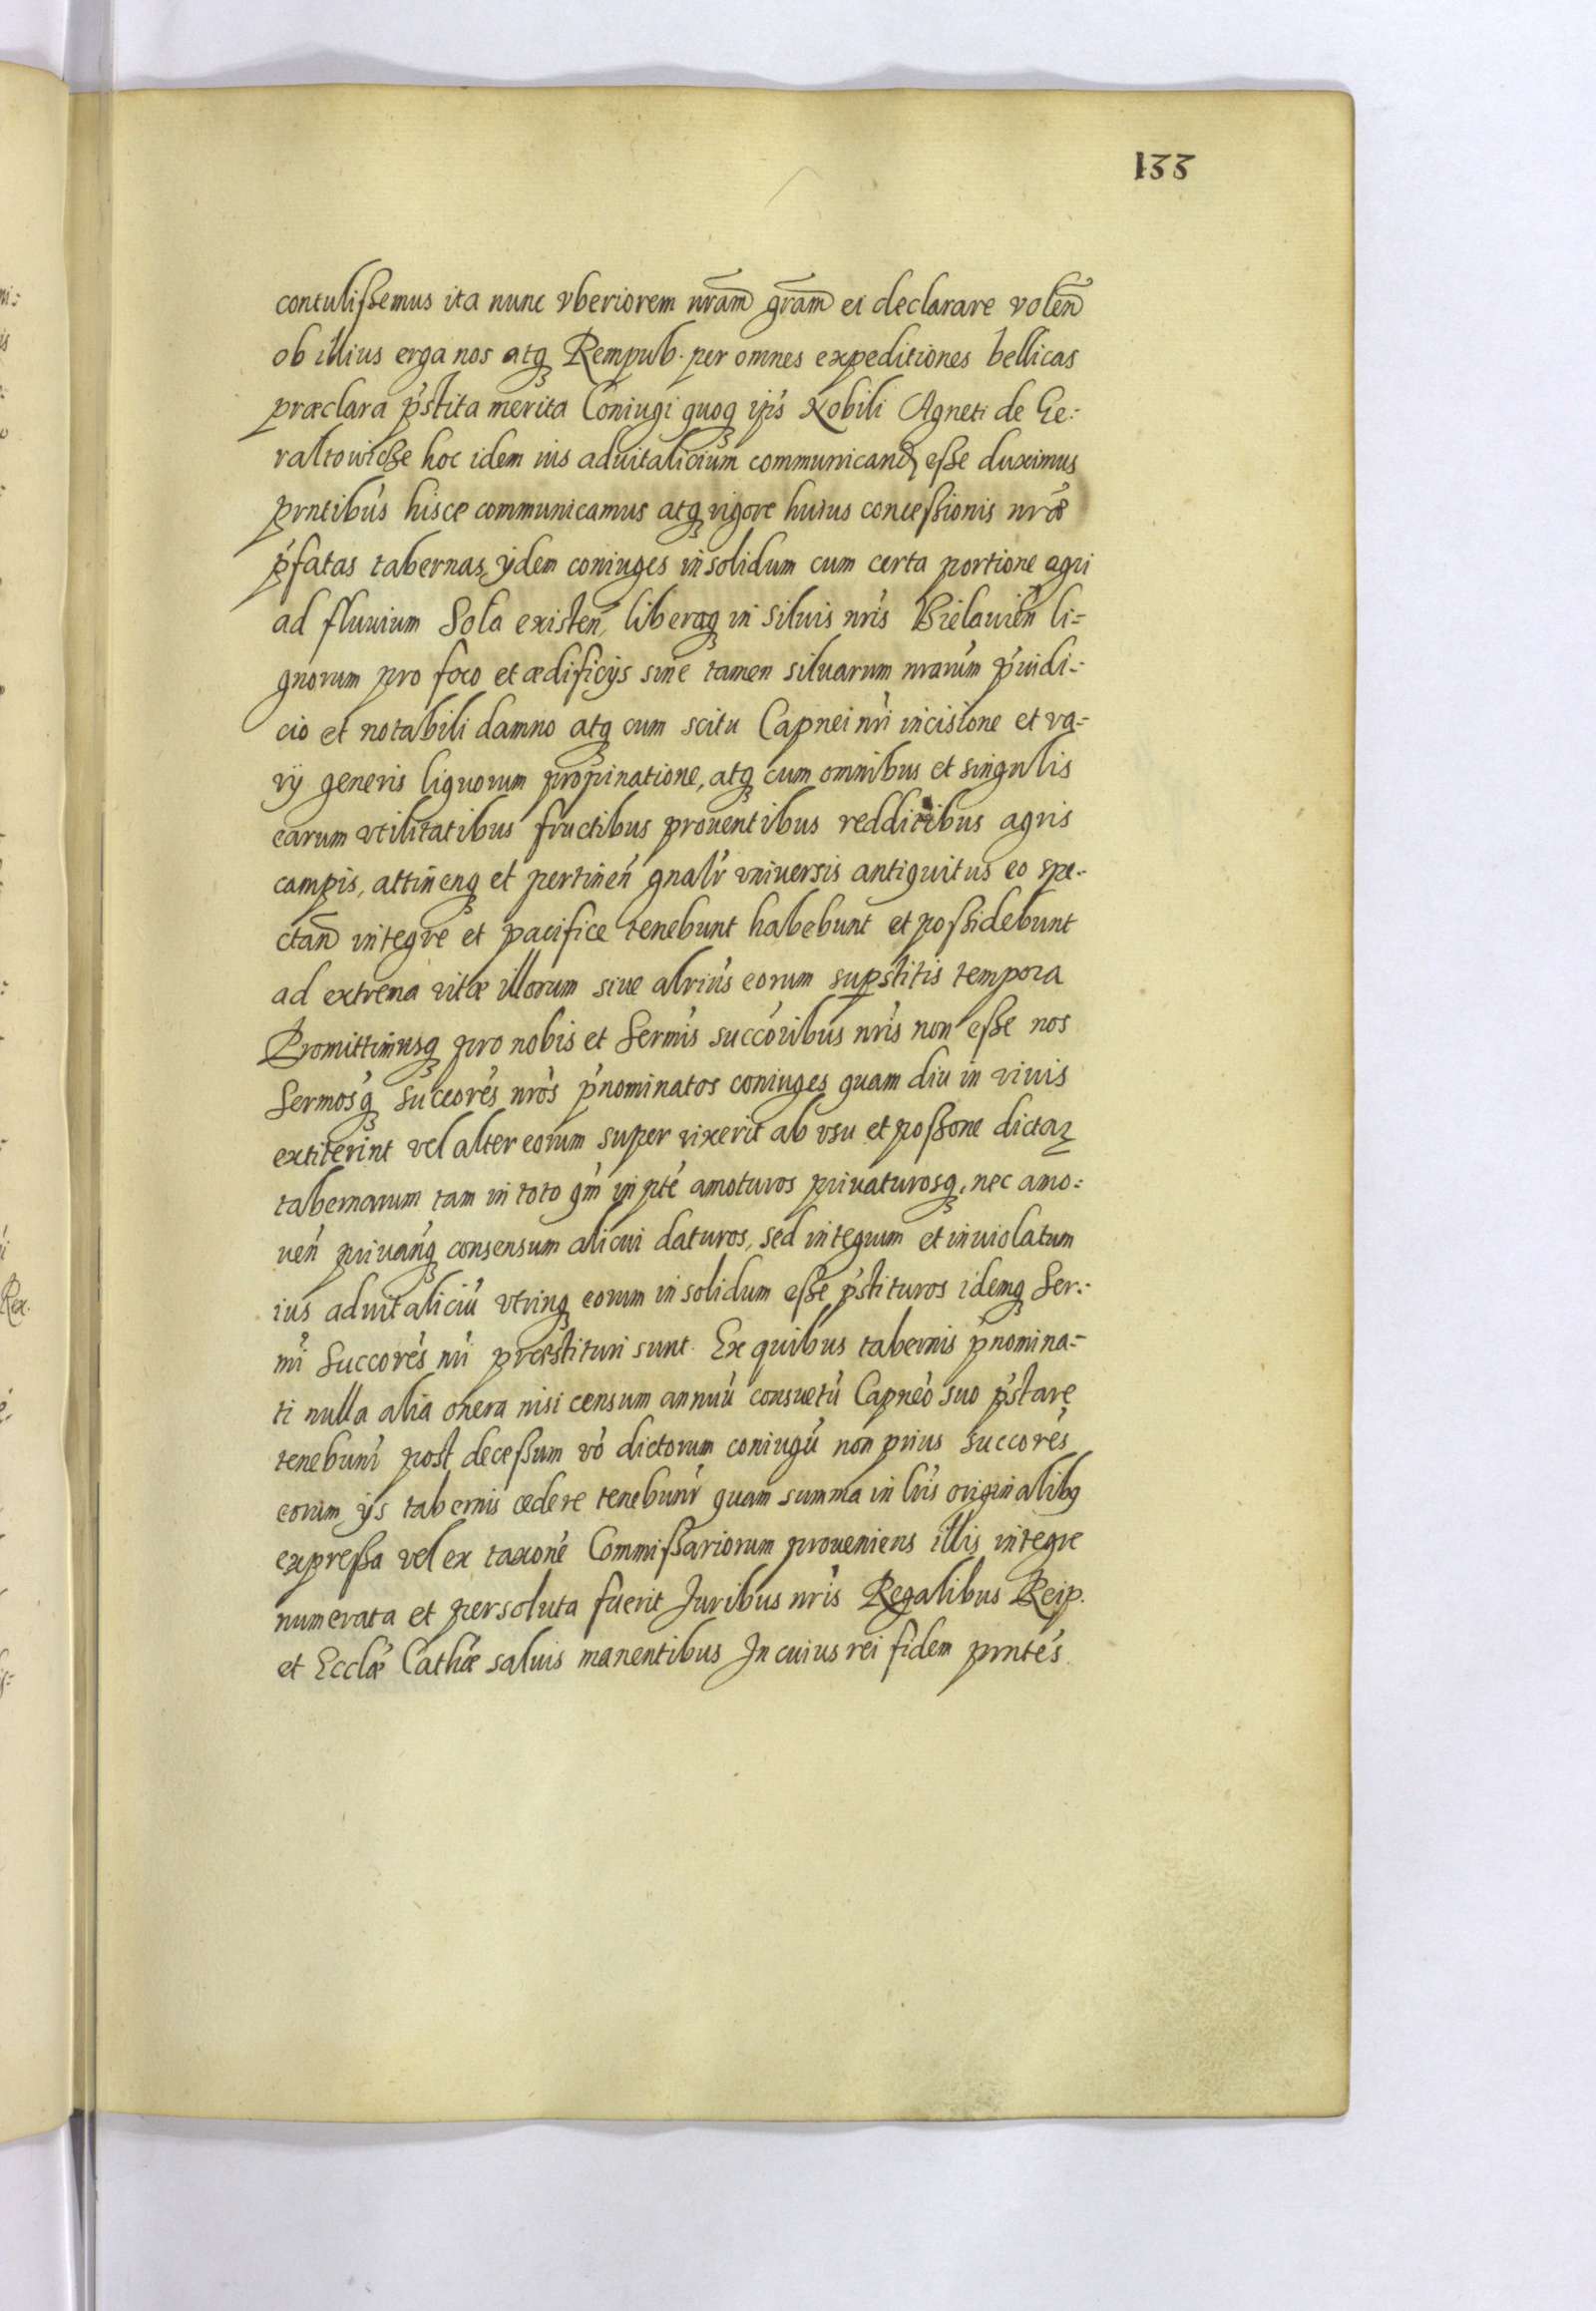 133
contulißemus ita nunc vberiorem nr̃am gr̃am ei declarare voleñ
ob illius erga nos atq Rempub. per omnes expeditiones bellicas
præclara p̃stita merita Coniugi quoq ip̃s Nobili Agneti de Ge-
raltowicße hoc idem ius aduitalicium communicand eße duximus
prntibus hisce communicamus atq vigore huius conceßionis nr̃æ
p̃fatas tabernas ijdem coniuges insolidum cum certa portione agri
ad fluuium Sola existeñ, liberaq in siluis nr̃is Bielauieñ li-
gnorum pro foco et ædificijs sine tamen siluarum nrarum p̃iudi-
cio et notabili damno atq cum scitu Capnei nr̃i incisione et va-
rij generis liquorum propinatione, atq cum omnibus et singulis
earum vtilitatibus fructibus prouentibus redditibus agris
campis, attineñq et pertineñ gnalr̃ vniuersis antiquitus eo spe-
ctañ integre et pacifice tenebunt habebunt et poßidebunt
ad extrema vitæ illorum siue alrius eorum sup̱stitis tempora
Promittimusq pro nobis et Sermis succoribus nr̃is non eße nos
Sermosq succores nr̃os p̃nominatos coniuges quam diu in viuis
extiterint vel alter eorum super vixerit ab vsu et poßone dictaꝝ
tabernarum tam in toto qm̃ in pte amoturos priuaturosq, nec amo-
ueñ priuanq consensum alicui daturos, sed integrum et inuiolatum
ius aduitaliciũ vtrinq eorum in solidum eße p̃stituros idemq Ser-
mi Succores nr̃i præstituri sunt. Ex quibus tabernis p̃nomina-
ti nulla alia onera nisi censum annuũ consuetũ Capneo suo p̃stare
tenebunr̃ post deceßum vo dictorum coniugũ non prius succores
eorum ijs tabernis cedere tenebunr̃ quam summa in lr̃is originalibq
expreßa vel ex taxone Commißariorum proueniens illis integre
numerata et persoluta fuerit Juribus nr̃is Regalibus Reip.
et Ecclæ Cathæ saluis manentibus In cuius rei fidem prntes
Rex.